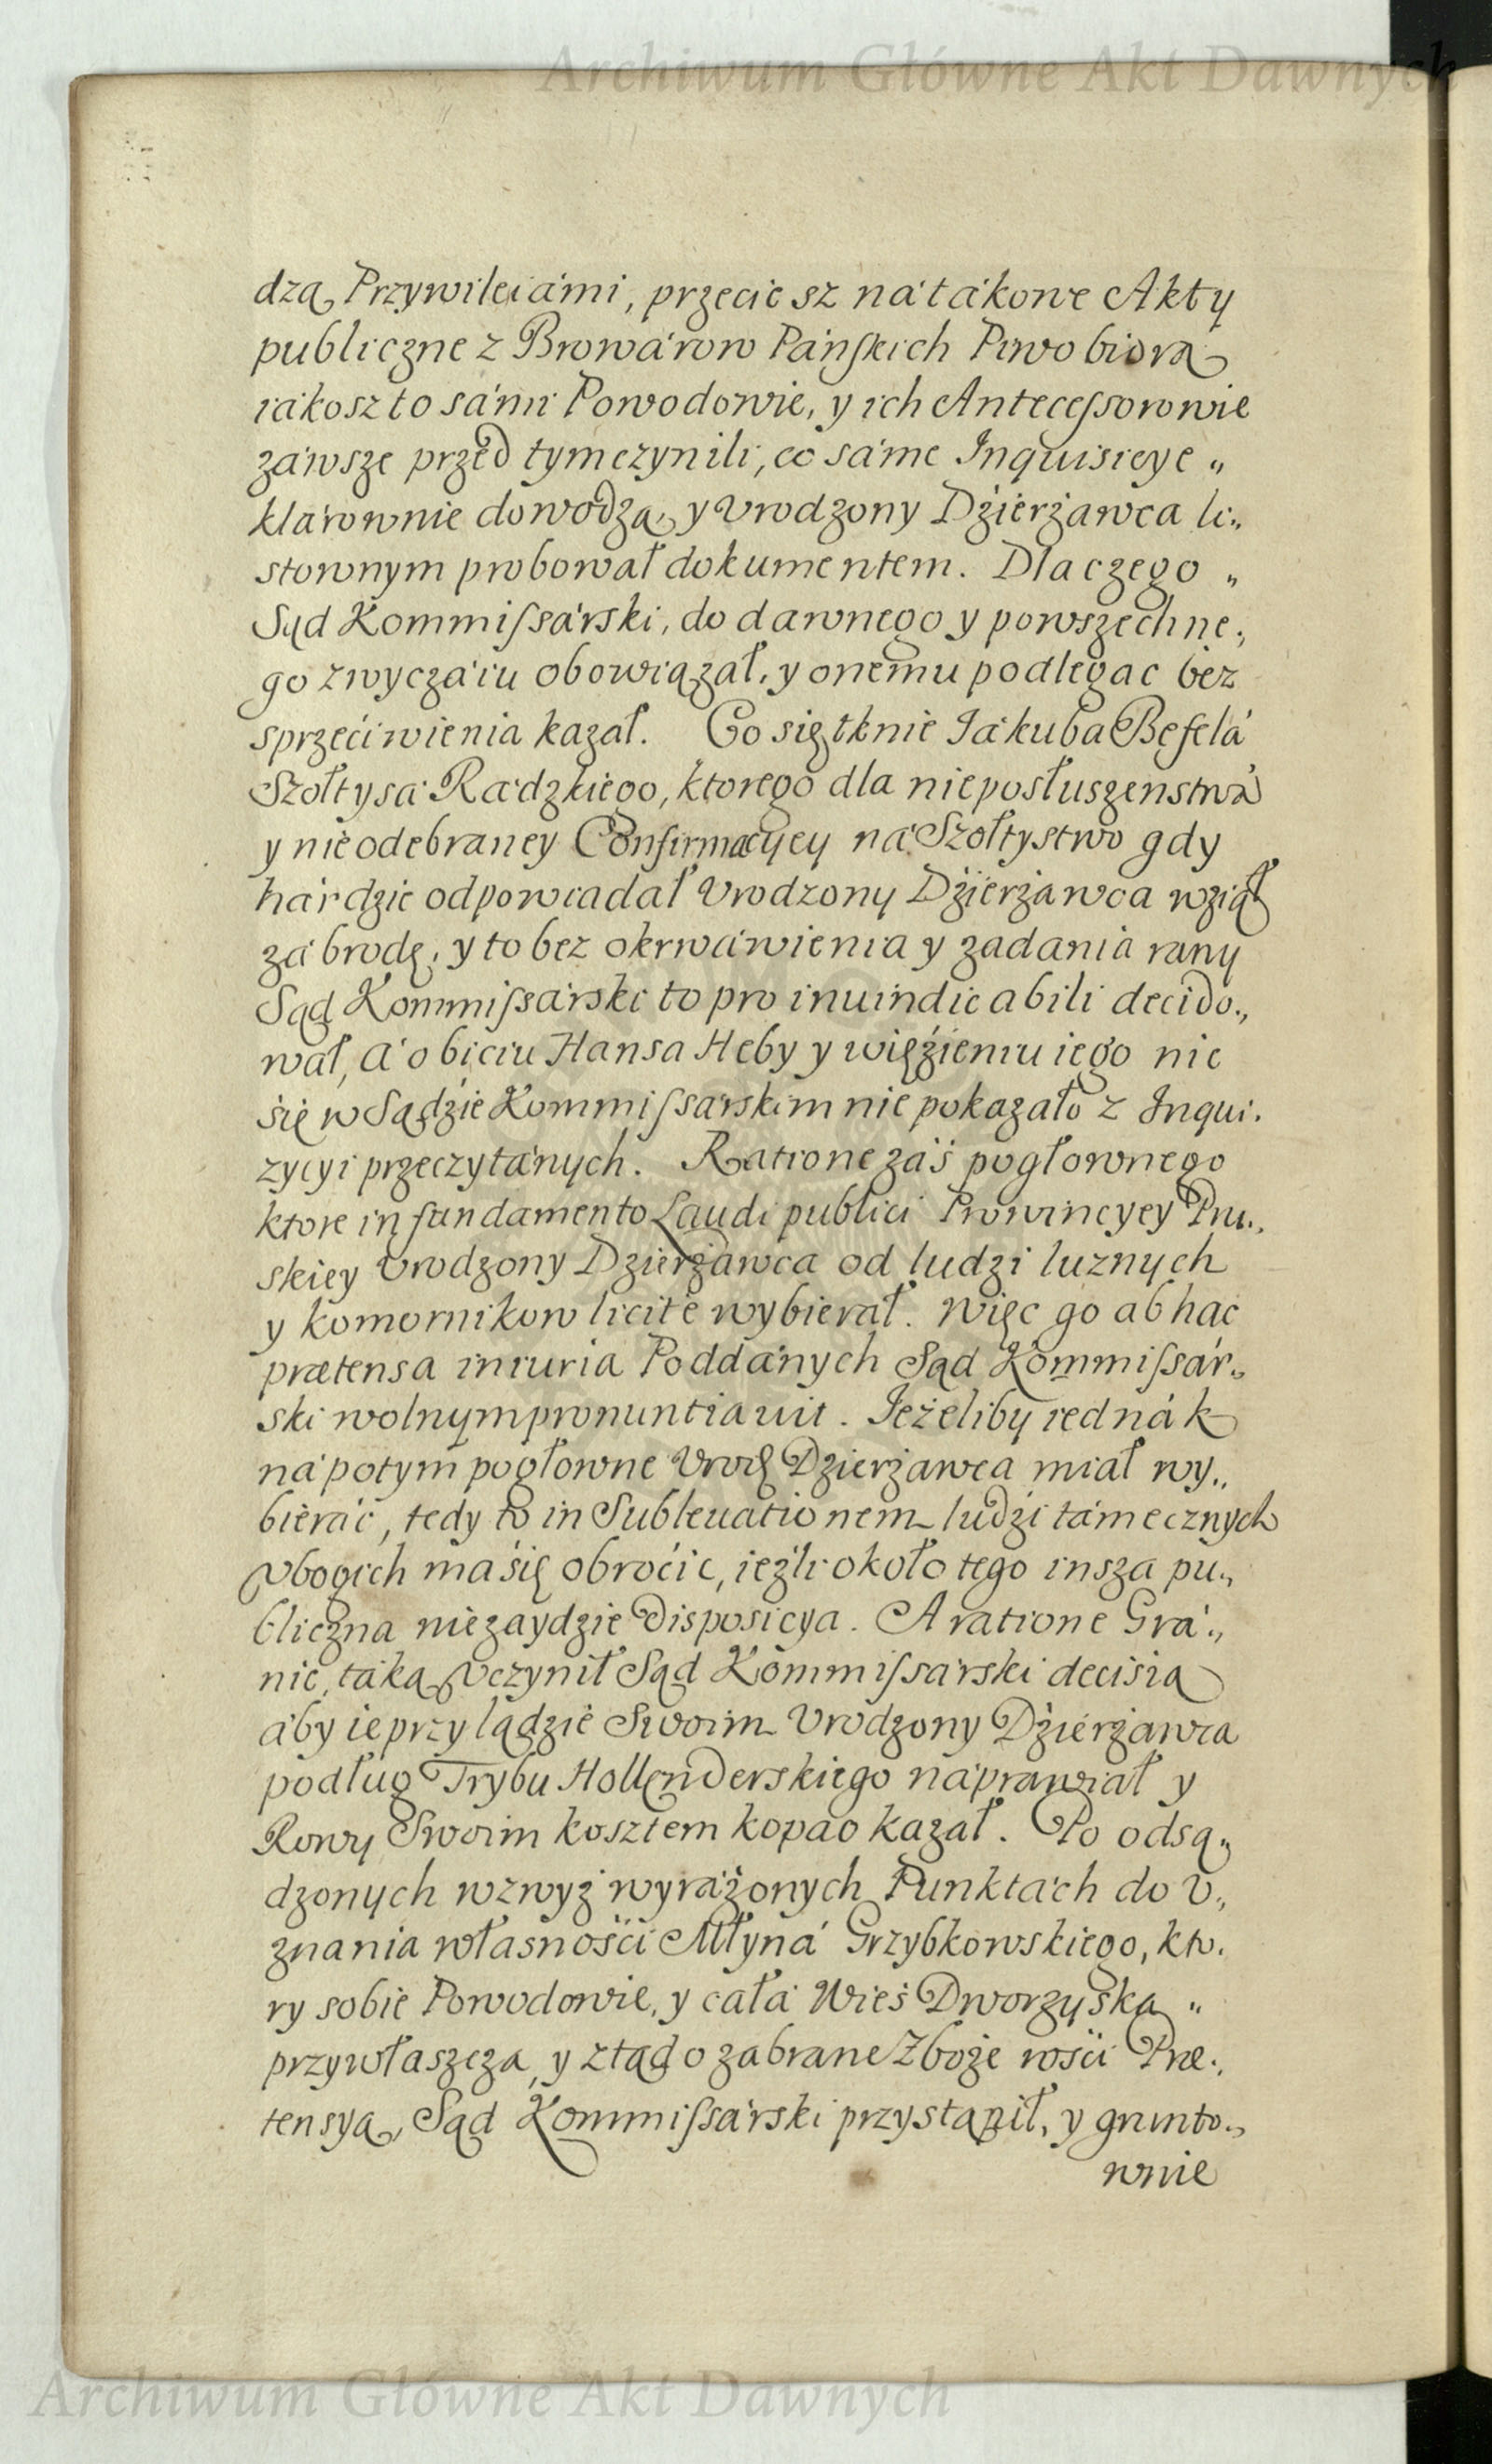 Archiwum Główne Akt Dawnych
dzą Przywileiámi, przecie sz ná tákowe Akty
publiczne z Browárow Páńskich Piwo biorą
iákosz to sámi Powodowie, y ich Antecessorowie
záwsze przed tym czynili, co sáme Inquisicye „
klárownie dowodzą, y Vrodzony Dźierżawca li„
stownym probował dokumentem. Dlaczego „
Sąd Kommissárski, do dawnego y powszechne„
go zwyczáiu obowiązał, y onemu podlegac bez
sprzeciwienia kazał. Co się tknie Iákuba Befelá
Szołtysá Rádzkiego, ktorego dla nieposłuszenstwá
y nieodebraney Confirmacyey ná Szołtystwo gdy
hárdzie odpowiadał Vrodzony Dźierżawca wziął
zá brodę, y to bez okrwáwienia y zadania rany
Sąd Kommissárski to pro inuindicabili decido„
wał, á o biciu Hansa Heby y więźieniu iego nic
się w Sądzie Kommissarskim nie pokazało z Inqui.
zycyi przeczytánych. Ratione záś pogłownego
ktore in fundamento Laudi publici Prowincyey Pru„
skiey Vrodzony Dzierżawca od ludzi luznych
y komornikow licite wybierał. Więc go ab hac
prætensa iniuria Poddánych Sąd Kommissár„
ski wolnym pronuntiauit. Jeżeliby iednák
ná potym pogłowne Vrodz Dzierżawca miał wy„
bieráć, tedy to in Subleuationem ludzi támecznych
Vbogich ma się obroćić, ieźli około tego insza pu„
bliczna niezaydzie Disposicya. A ratione Grá„
nic, táką Vczynił Sąd Kommissarski decisią
áby ie przy lądzie Swoim Vrodzony Dźierżawca
podług Trybu Hollenderskiego náprawiał y
Rowy Swoim kosztem kopać kazał. Po odsą„
dzonych wzwyż wyráżonych Punktách do V„
znania własnośći Młyná Grzybkowskiego, kto.
ry sobie Powodowie, y całá Wieś Dworzyska „
przywłaszcza, y ztąd o zabrane Zboże rośći Præ„
tensyą, Sąd Kommissárski przystąpił, y grunto„
wnie
Archiwum Główne Akt Dawnych